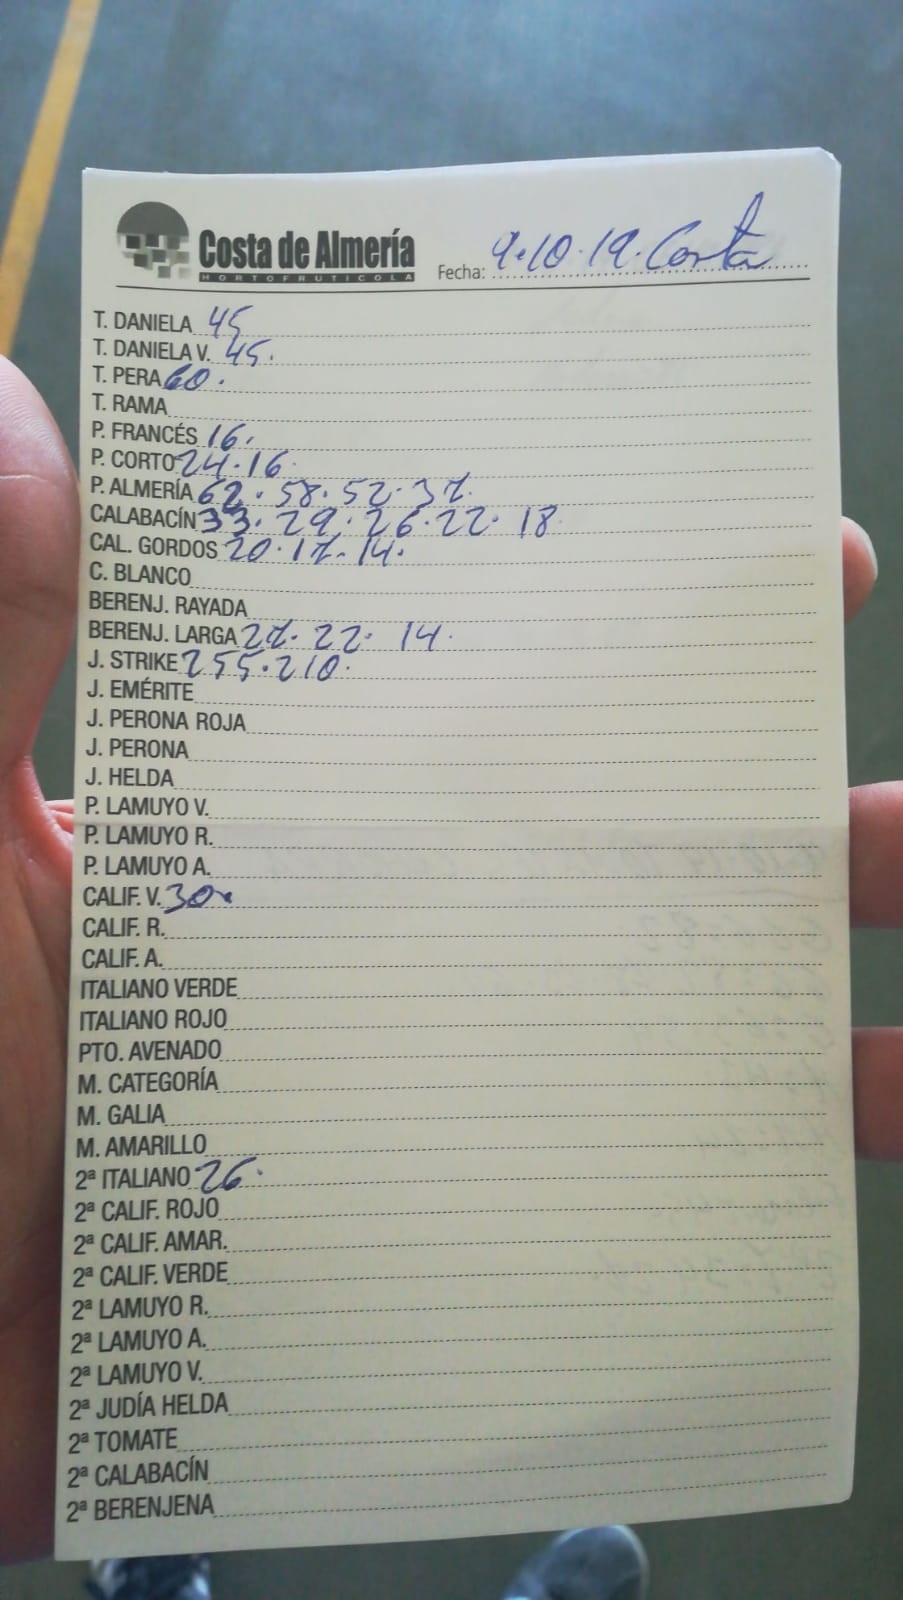 Costa de Almería
HORTOFRUTICOLA
Fecha: 9.10.19. Costa
T. DANIELA 45
T. DANIELA V. 45.
T. PERA 60.
T. RAMA
P. FRANCÉS 16.
P. CORTO 24.16.
P. ALMERÍA 62.58.52.37.
CALABACÍN 33.29.26.22.18.
CAL. GORDOS 20.17.14.
C. BLANCO
BERENJ. RAYADA
BERENJ. LARGA 27.22.14.
J. STRIKE 255.210.
J. EMÉRITE
J. PERONA ROJA
J. PERONA
J. HELDA
P. LAMUYO V.
P. LAMUYO R.
P. LAMUYO A.
CALIF. V. 30.
CALIF. R.
CALIF. A.
ITALIANO VERDE
ITALIANO ROJO
PTO. AVENADO
M. CATEGORÍA
M. GALIA
M. AMARILLO
2ª ITALIANO 26.
2ª CALIF. ROJO
2ª CALIF. AMAR.
2ª CALIF. VERDE
2ª LAMUYO R.
2ª LAMUYO A.
2ª LAMUYO V.
2ª JUDÍA HELDA
2ª TOMATE
2ª CALABACÍN
2ª BERENJENA